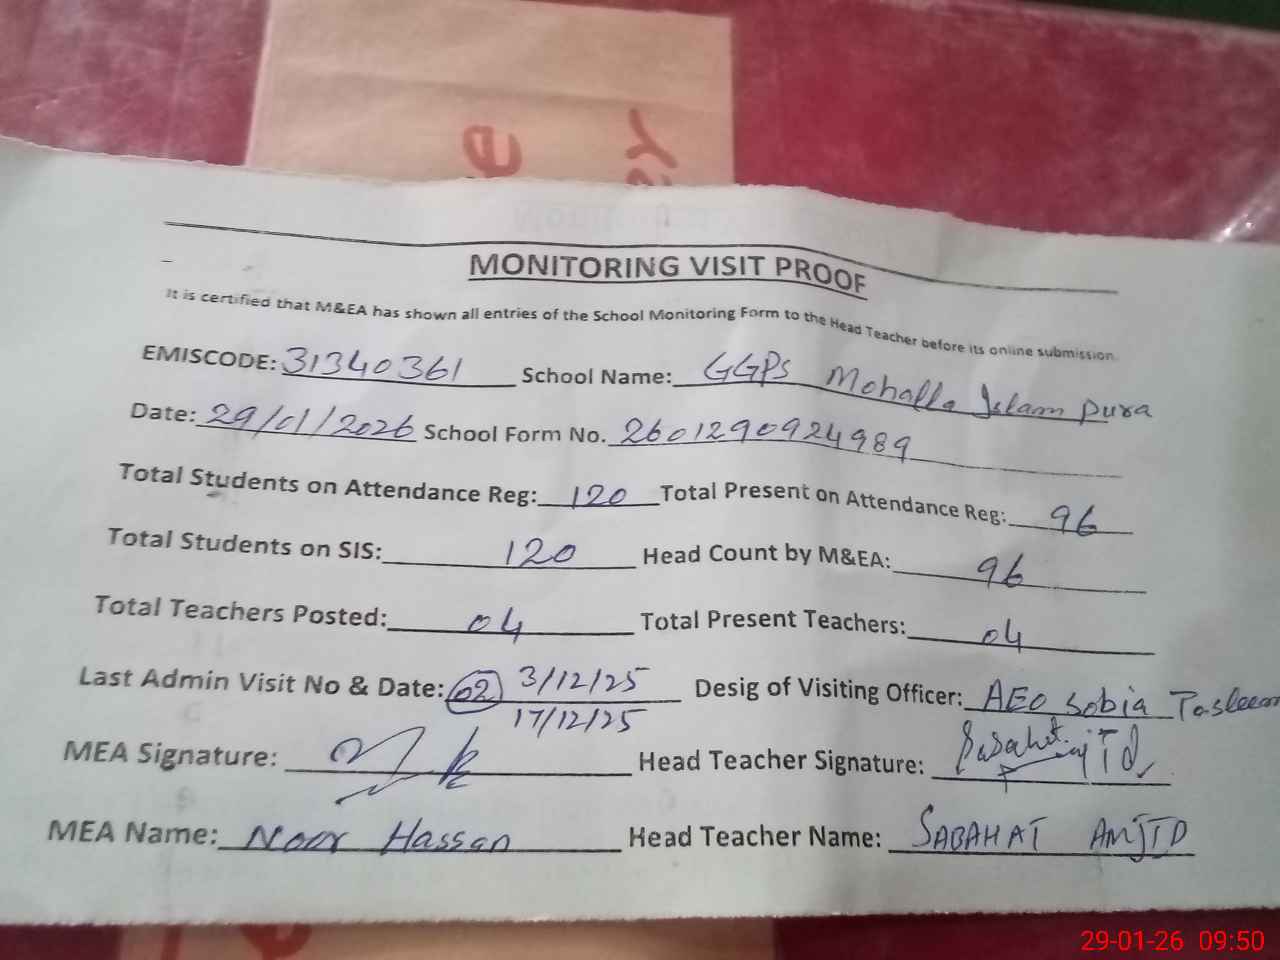 MONITORING VISIT PROOF
It is certified that M&EA has shown all entries of the School Monitoring Form to the Head Teacher before its online submission.
EMISCODE: 31340361 School Name: GGPS Mohalla Islam pura
Date: 29/01/2026 School Form No. 2601290924989
Total Students on Attendance Reg: 120 Total Present on Attendance Reg: 96
Total Students on SIS: 120 Head Count by M&EA: 96
Total Teachers Posted: 04 Total Present Teachers: 04
Last Admin Visit No & Date: 02 3/12/25 Desig of Visiting Officer: AEO Sobia Tasleem
17/12/25
MEA Signature: Head Teacher Signature:
MEA Name: Noor Hassan Head Teacher Name: SABAHAT AMJID
29-01-26 09:50